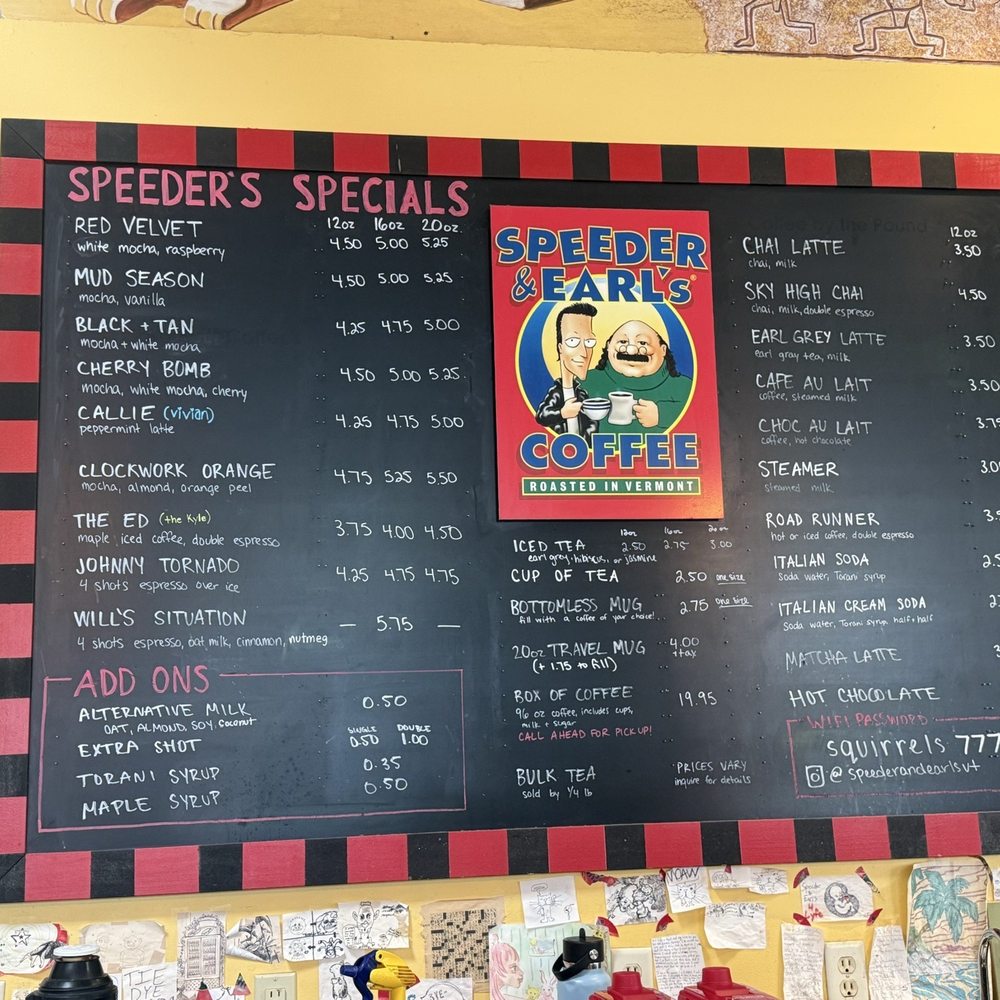 SPEEDER'S SPECIALS
12oz 16oz 20oz
RED VELVET 4.50 5.00 5.25
white mocha, raspberry
MUD SEASON 4.50 5.00 5.25
mocha, vanilla
BLACK + TAN 4.25 4.75 5.00
mocha + white mocha
CHERRY BOMB 4.50 5.00 5.25
mocha, white mocha, cherry
CALLIE (vivian) 4.25 4.75 5.00
peppermint latte
CLOCKWORK ORANGE 4.75 525 5.50
mocha, almond, orange peel
THE ED (the Kyle) 3.75 4.00 4.50
maple iced coffee, double espresso
JOHNNY TORNADO 4.25 4.75 4.75
4 shots espresso over ice
WILL'S SITUATION — 5.75 —
4 shots espresso, oat milk, cinnamon, nutmeg
ADD ONS
ALTERNATIVE MILK 0.50
OAT, ALMOND, SOY, coconut
SINGLE DOUBLE
EXTRA SHOT 0.50 1.00
TORANI SYRUP 0.35
MAPLE SYRUP 0.50
SPEEDER
& EARL'S®
COFFEE
ROASTED IN VERMONT
12oz 16oz 20oz
ICED TEA 2.50 2.75 3.00
earl grey, hibiscus, or jasmine
CUP OF TEA 2.50 one size
BOTTOMLESS MUG 2.75 one size
fill with a coffee of your choice!
20oz TRAVEL MUG 4.00
(+ 1.75 to fill) +tax
BOX OF COFFEE 19.95
96 oz coffee, includes cups,
milk + sugar
CALL AHEAD FOR PICKUP!
BULK TEA PRICES VARY
sold by 1/4 lb inquire for details
12oz
CHAI LATTE 3.50
chai, milk
SKY HIGH CHAI 4.50
chai, milk, double espresso
EARL GREY LATTE 3.50
earl gray tea, milk
CAFE AU LAIT 3.50
coffee, steamed milk
CHOC AU LAIT 3.75
coffee, hot chocolate
STEAMER 3.0
steamed milk
ROAD RUNNER 3.5
hot or iced coffee, double espresso
ITALIAN SODA 2.5
Soda water, Torani syrup
ITALIAN CREAM SODA 2.
Soda water, Torani syrup, half + half
MATCHA LATTE 3
HOT CHOCOLATE
WIFI PASSWORD
squirrels 777
@speederandearlsvt